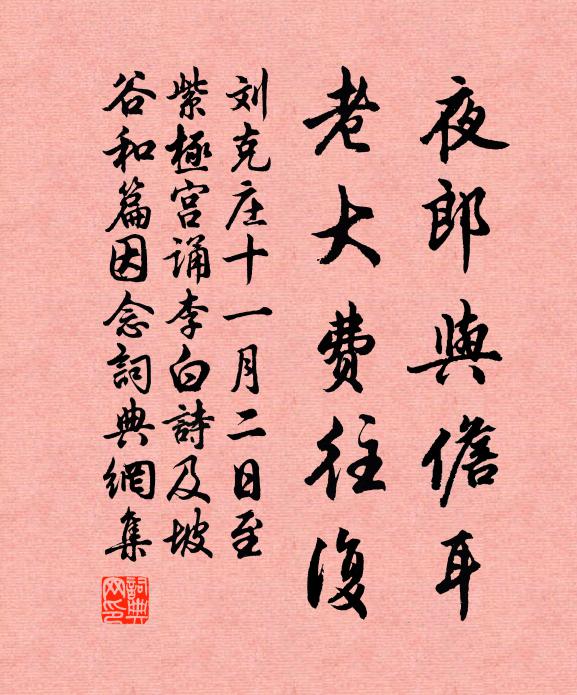 夜郎與儋耳
老大費往復
刘克庄十一月二日至
紫極宫诵李白詩及坡
谷和篇因念詞典網集
詞典
网印